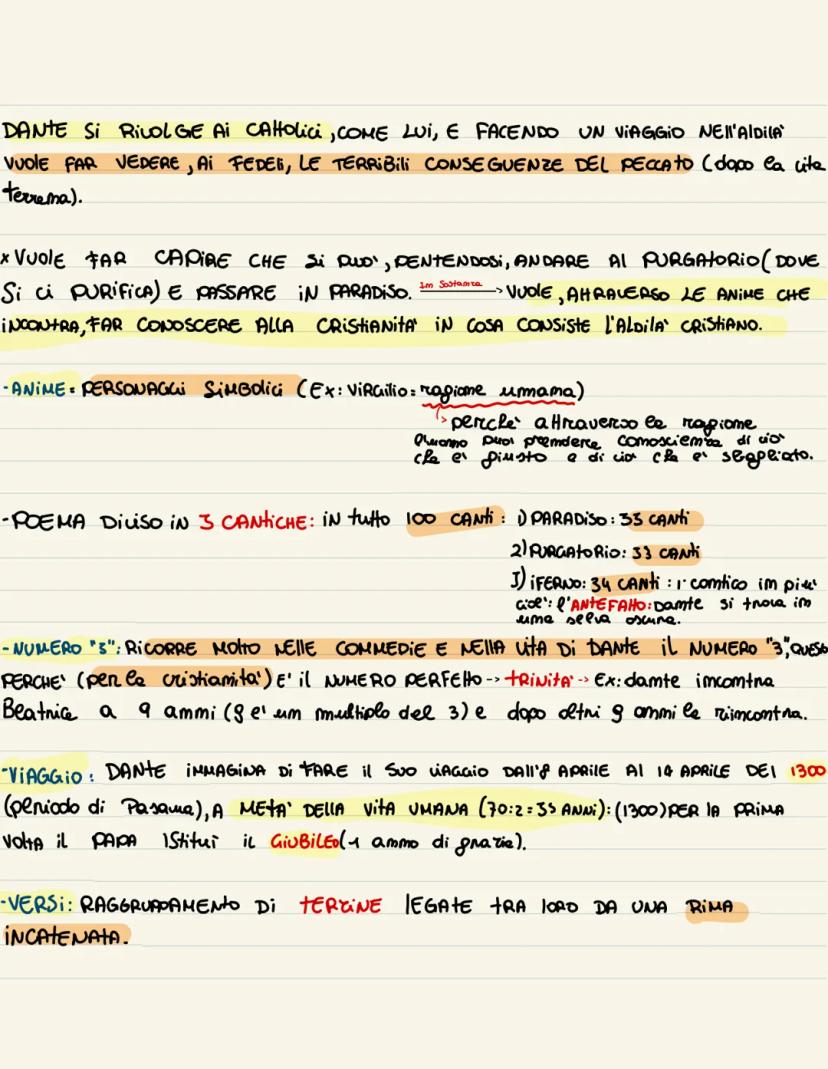 DANTE SI RIVOLGE AI CATTOLICI, COME LUI, E FACENDO UN VIAGGIO NELL'ALDILA'
VUOLE FAR VEDERE, AI FEDELI, LE TERRIBILI CONSEGUENZE DEL PECCATO (dopo la vita
terrena).
× VUOLE FAR CAPIRE CHE SI PUO', PENTENDOSI, ANDARE AL PURGATORIO (DOVE
SI CI PURIFICA) E PASSARE IN PARADISO. In sostanza → VUOLE, ATTRAVERSO LE ANIME CHE
INCONTRA, FAR CONOSCERE ALLA CRISTIANITA' IN COSA CONSISTE L'ALDILA' CRISTIANO.
- ANIME = PERSONAGGI SIMBOLICI (EX: VIRGILIO = ragione umana)
↳ perche' attraverso la ragione
l'uomo puoi prendere conoscienza di cio'
che e' giusto e di cio' che e' sbagliato.
- POEMA DIVISO IN 3 CANTICHE: IN tutto 100 CANTI: 1) PARADISO: 33 CANTI
2) PURGATORIO: 33 CANTI
3) IFERNO: 34 CANTI: 1 cantico in piu'
cioe': l'ANTEFATTO: Dante si trova in
una selva oscura.
- NUMERO "3": RICORRE MOLTO NELLE COMMEDIE E NELLA VITA DI DANTE IL NUMERO "3", QUESTO
PERCHE' (per la cristianita') E' IL NUMERO PERFETTO --> TRINITA' --> EX: dante incontra
Beatrice a 9 anni (9 e' un multiplo del 3) e dopo altri 9 anni la rincontra.
- VIAGGIO: DANTE IMMAGINA DI FARE IL SUO VIAGGIO DALL'8 APRILE AL 14 APRILE DEL 1300
(periodo di Pasqua), A META' DELLA VITA UMANA (70:2=35 ANNI): (1300) PER LA PRIMA
VOLTA IL PAPA ISTITUI' IL GIUBILEO (1 anno di grazie).
- VERSI: RAGGRUPPAMENTO DI TERZINE LEGATE TRA LORO DA UNA RIMA
INCATENATA.